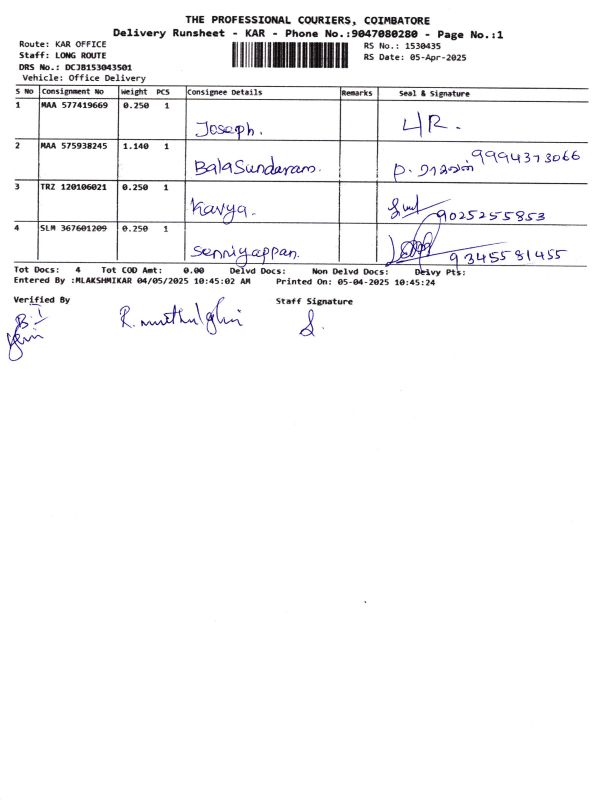 THE PROFESSIONAL COURIERS, COIMBATORE
Delivery Runsheet - KAR - Phone No.:9047080280 - Page No.:1
Route: KAR OFFICE
RS No.: 1530435
Staff: LONG ROUTE
RS Date: 05-Apr-2025
DRS No.: DCJB153043501
Vehicle: Office Delivery
S No Consignment No Weight PCS Consignee Details Remarks Seal & Signature
1 MAA 577419669 0.250 1
Joseph.
2 MAA 575938245 1.140 1
BalaSundaram. 9994373066
3 TRZ 120106021 0.250 1
Kavya. 9025255853
4 SLM 367601209 0.250 1
Senniyappan. 9345581455
Tot Docs: 4 Tot COD Amt: 0.00 Delvd Docs: Non Delvd Docs: Delvy Pts:
Entered By :MLAKSHMIKAR 04/05/2025 10:45:02 AM Printed On: 05-04-2025 10:45:24
Verified By Staff Signature